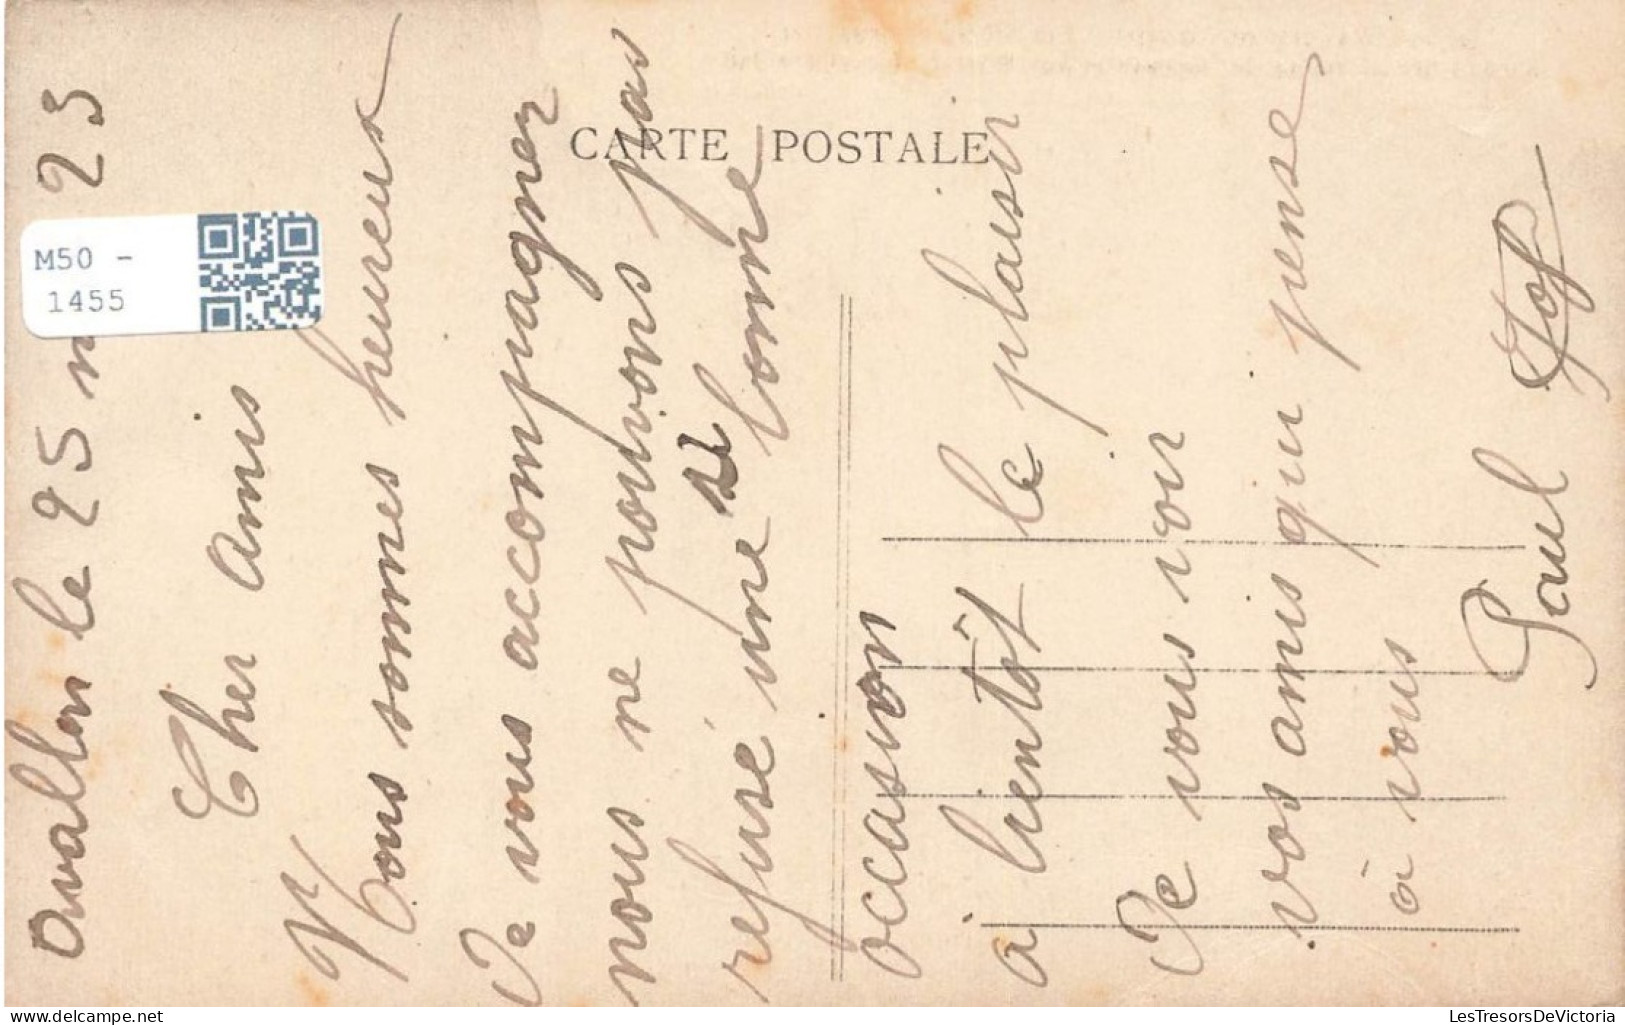 CARTE POSTALE
M50 -
1455
Avallon le 25 23
Cher Amis
Nous sommes heureux
De vous accompagner
nous ne pouvons pas
refusé une si bonne
occasion
à bientôt le plaisir
De vous voir
vos amis qui pense
à vous
Paul
LesTresorsDeVictoria